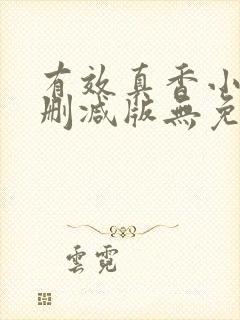 有效真香小
删减版無免
雲霓